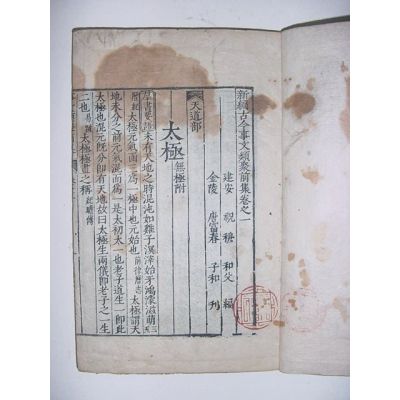 新編古今事文類聚前集卷之一
建安 祝穆 和父 編
金陵 唐富春 子和 刊
天道部
太極 無極附
未有天地之時混沌如雞子溟涬始牙鴻濛滋萌
太極元氣函三為一極中也元始也 前律曆志 太極謂天
地未分之前元氣混而為一是太初太一也老子道生一即此
太極也混元既分即有天地故曰太極生兩儀即老子之一生
二也 易疏 太極極盡之稱